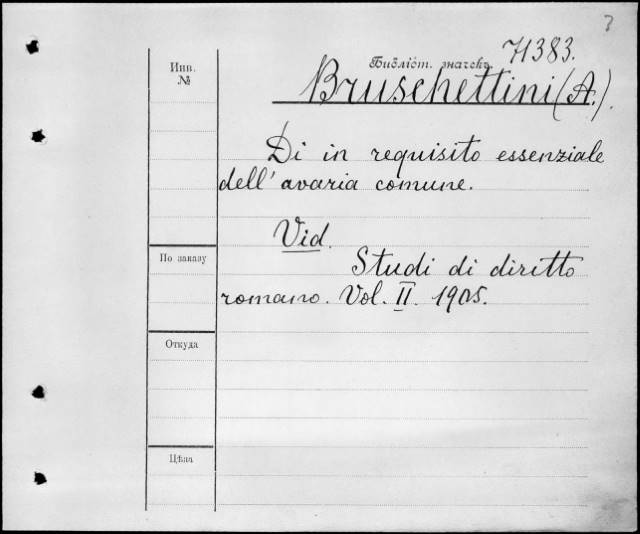 3
71383.
Инв.
№
Библіот. значекъ.
Bruschettini (A.).
Di in requisito essenziale
dell' avaria comune.
Vid.
По заказу
Studi di diritto
romano. Vol. II. 1905.
Откуда
Цѣна